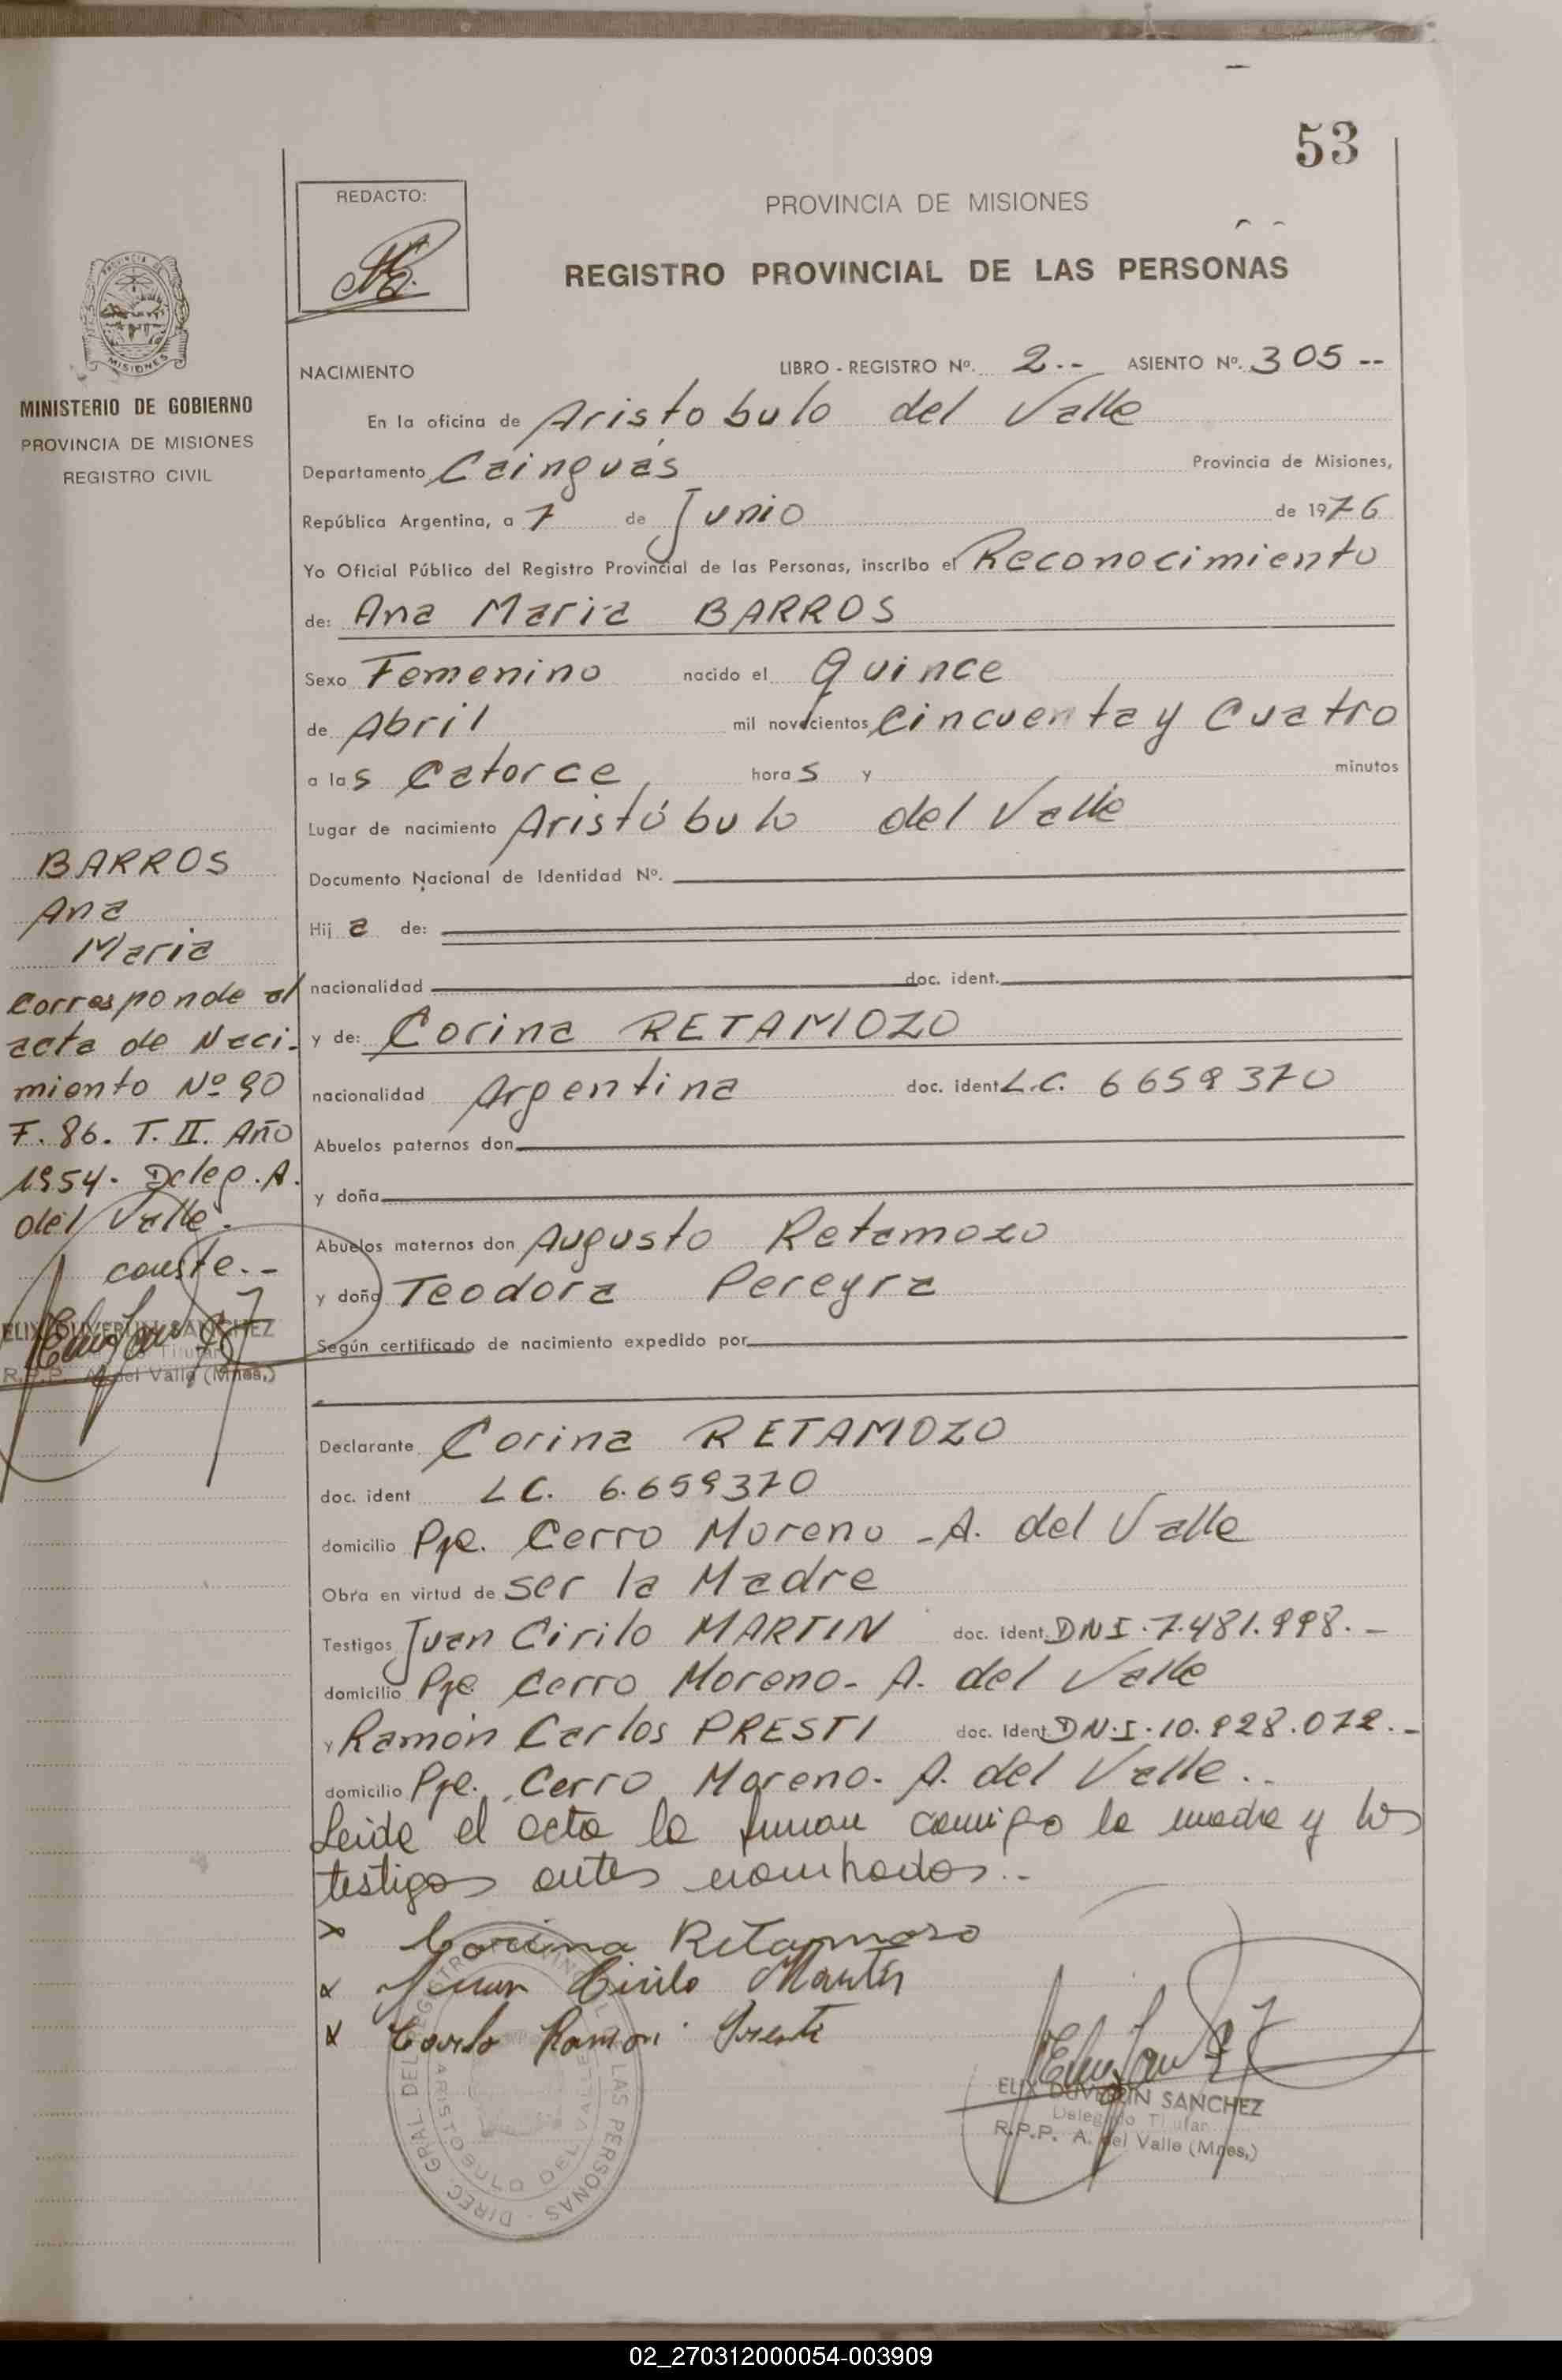 53
REDACTO:
PROVINCIA DE MISIONES
REGISTRO PROVINCIAL DE LAS PERSONAS
MISIONES
MINISTERIO DE GOBIERNO
PROVINCIA DE MISIONES
REGISTRO CIVIL
NACIMIENTO LIBRO - REGISTRO Nº. 2.-- ASIENTO Nº. 305 --
En la oficina de Aristobulo del Valle
Departamento Cainguás Provincia de Misiones,
República Argentina, a 7 de Junio de 1976
Yo Oficial Público del Registro Provincial de las Personas, inscribo el Reconocimiento
de: Ana Maria BARROS
Sexo Femenino nacido el Quince
de Abril mil novecientos Cincuenta y Cuatro
a las Catorce horas y minutos
Lugar de nacimiento Aristóbulo del Valle
Documento Nacional de Identidad Nº.
Hija de:
nacionalidad doc. ident.
y de: Corina RETAMOZO
nacionalidad Argentina doc. ident L.C. 6659370
Abuelos paternos don
y doña
Abuelos maternos don Augusto Retamozo
y doña Teodora Pereyra
Según certificado de nacimiento expedido por
BARROS
Ana
Maria
Corresponde al
acta de Naci-
miento Nº 90
F. 86. T. II. Año
1954. Deleg. A.
del Valle.
conste.-
ELIX DUVERLIN SANCHEZ
Titular
R.P.P. A. del Valle (Mnes.)
Declarante Corina RETAMOZO
doc. ident L C. 6.659370
domicilio Pje. Cerro Moreno - A. del Valle
Obra en virtud de ser la Madre
Testigos Juan Cirilo MARTIN doc. ident. DNI. 7.481.998.-
domicilio Pje Cerro Moreno - A. del Valle
y Ramón Carlos PRESTI doc. Ident. DN.I. 10.928.072.-
domicilio Pje. Cerro Moreno - A. del Valle..
Leida el acta la firman conmigo la madre y los
testigos antes nombrados..-
x Corina Retamoso
x Juan Cirilo Martin
x Carlo Ramon Presti
DIREC. GRAL DEL REGISTRO LAS PERSONAS
ARISTOBULO DEL VALLE
ELIX DUVERLIN SANCHEZ
Delegado Titular
R.P.P. A. del Valle (Mnes.)
02_270312000054-003909